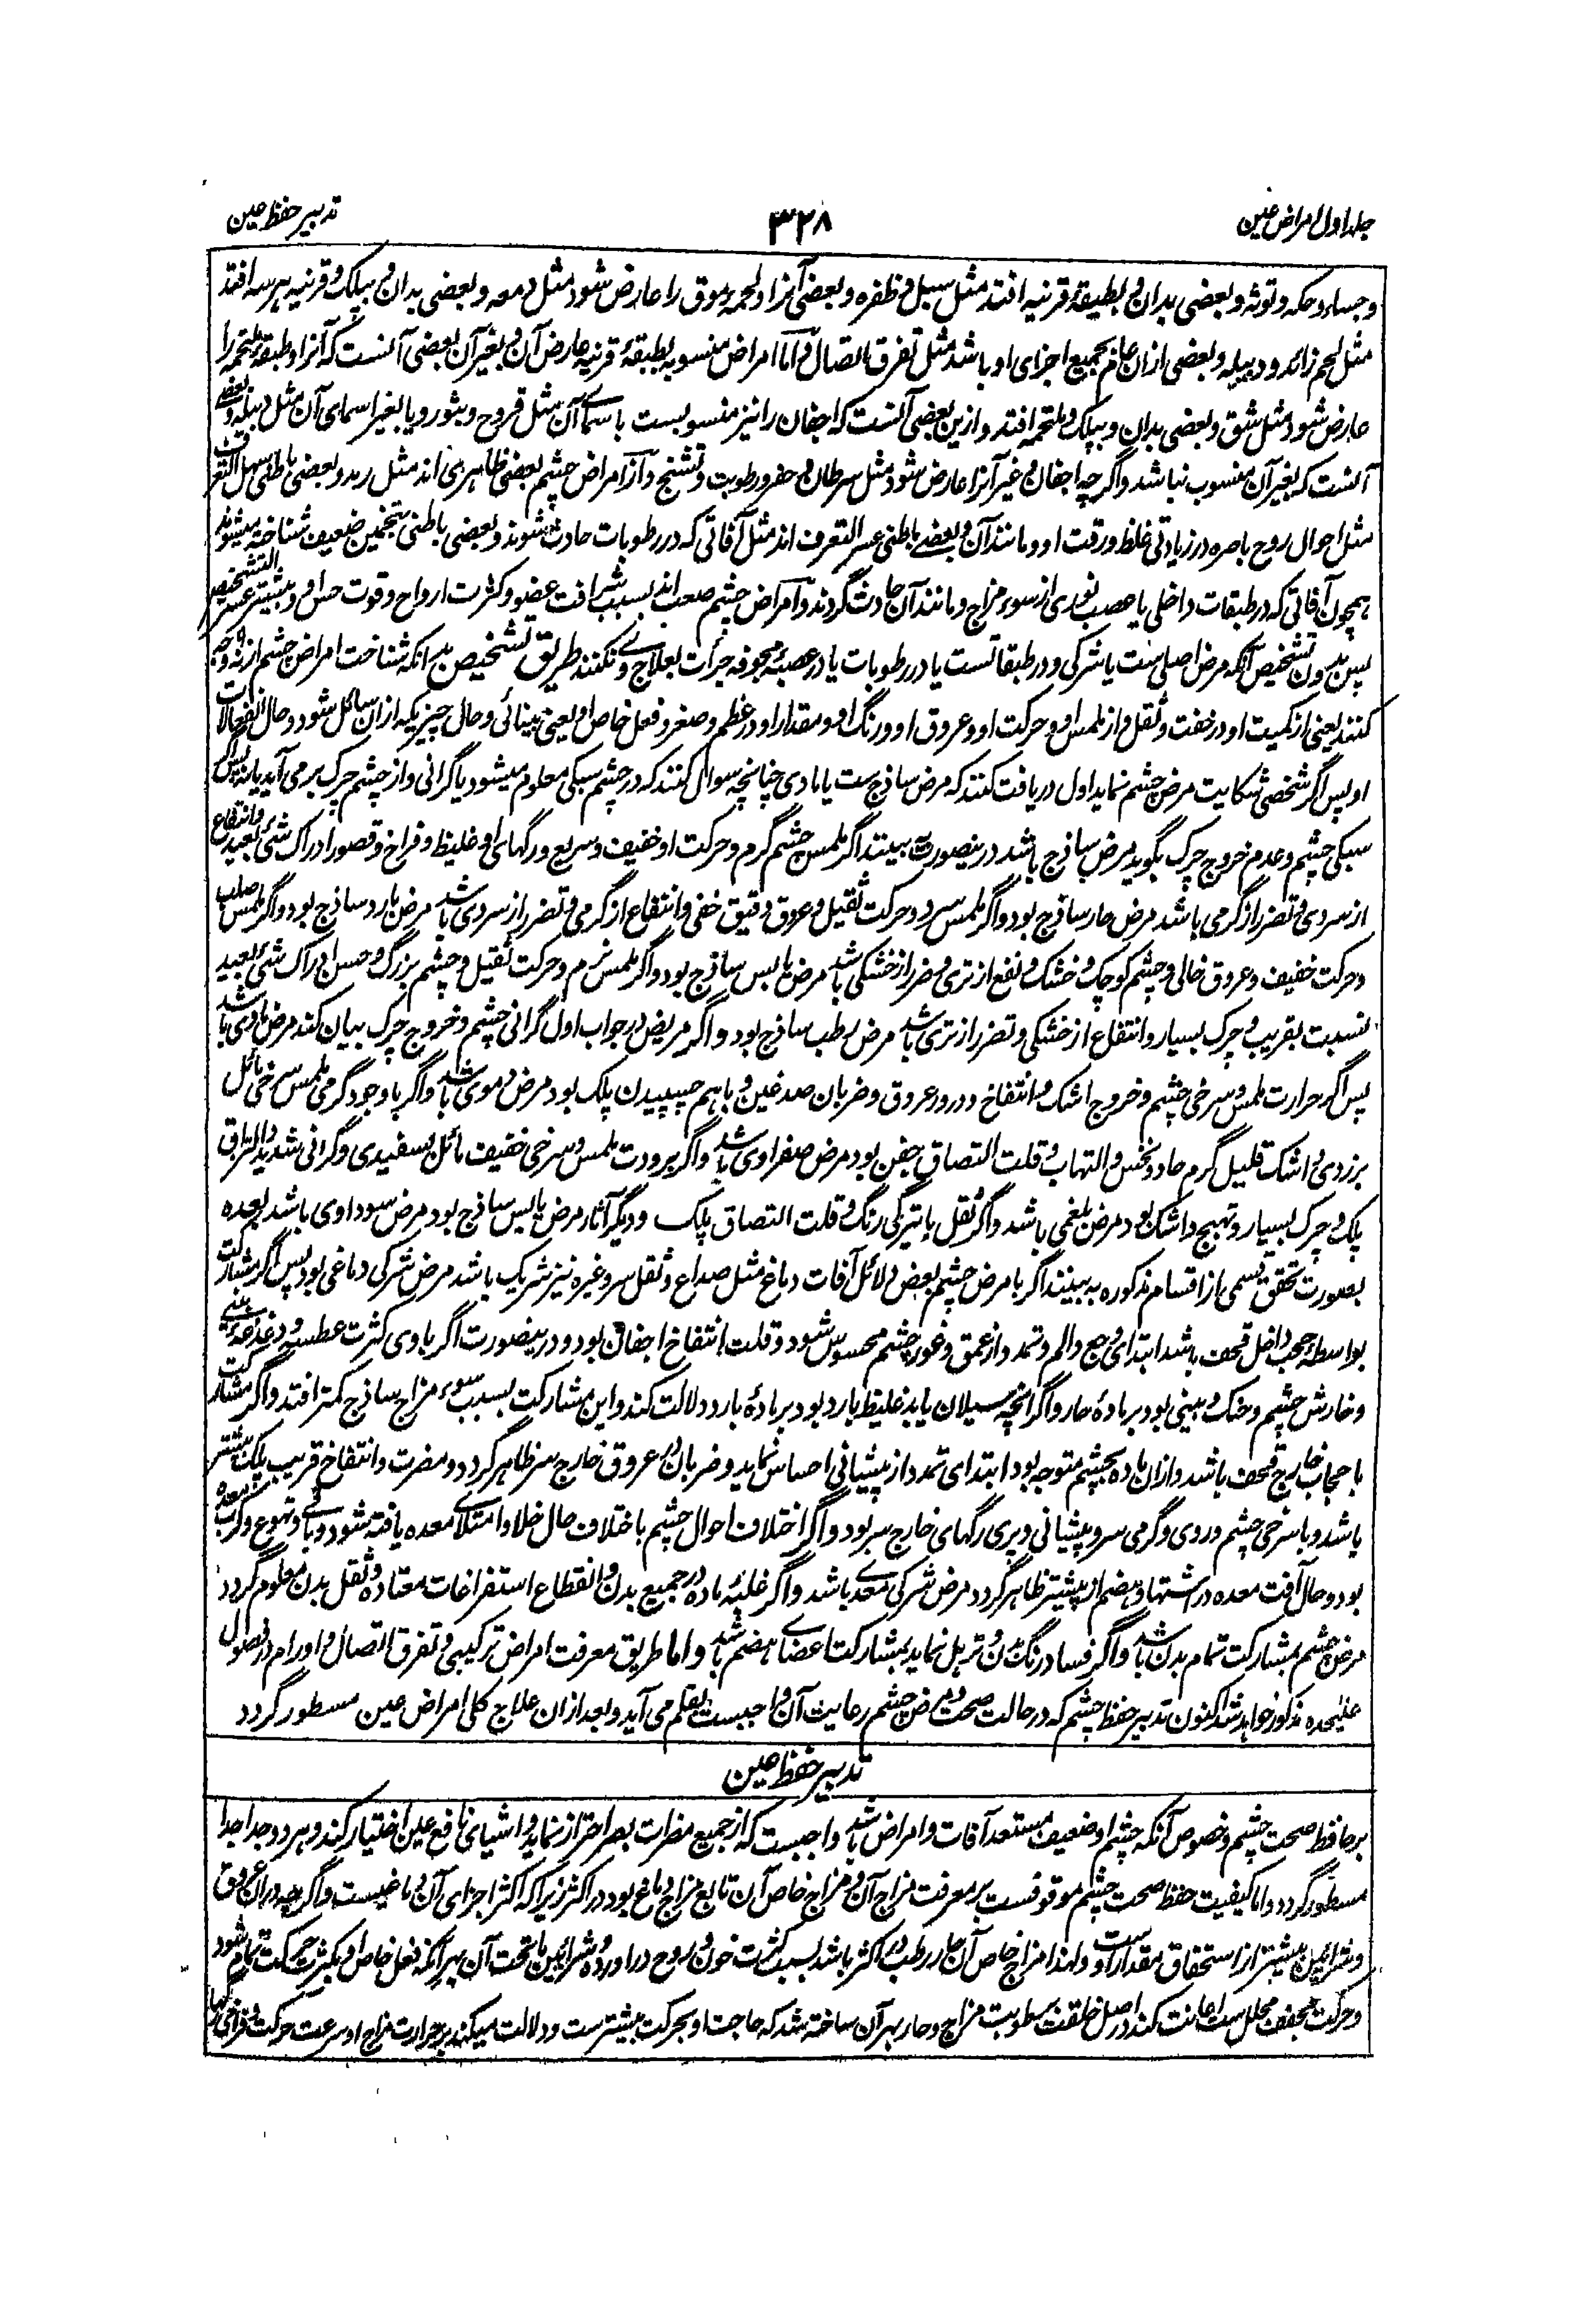 جلد اول امراض عین
۳۲۸
تدبیر حفظ عین
و جساء و حکه و توثه و بعضی بدان و بطبقهٔ قرنیه افتد مثل سبل و ظفره و بعضی آنرا و لحمهٔ موق را عارض شود مثل دمعه و بعضی بدان و بپلک و قرنیه هرسه افتد
مثل لحم زائد و دبیله و بعضی ازان عام بجمیع اجزای او باشد مثل تفرق اتصال و اما امراض منسوبه بطبقهٔ قرنیه عارض آن و بغیر آن بعضی آنست که آنرا و طبقهٔ ملتحمه را
عارض شود مثل شق و بعضی بدان و بپلک و ملتحمه افتد و ازین بعضی آنست که اجفان را نیز منسوبست باسمای آن مثل قروح و بثور و یا بغیر اسمای آن مثل دبیله و بعضی
آنست که بغیر آن منسوب نباشد و اگرچه اجفان و غیر آنرا عارض شود مثل سرطان و حفر و رطوبت و تشنج و از امراض چشم بعضی ظاهری اند مثل رمد و بعضی باطنی سهل التعرف
مثل احوال روح باصره در زیادتی غلظ و رقت او و مانند آن و بعضی باطنی عسر التعرف اند مثل آفاتی که در رطوبات حادث شوند و بعضی باطنی بتخمین ضعیف شناخته میشوند
همچون آفاتی که در طبقات داخلی یا عصب نوری از سوء مزاج و مانند آن حادث گردند و امراض چشم صعب اند بسبب شرافت عضو و کثرت ارواح و قوت حس او و بیشتر عسر التشخیص
پس بدون تشخیص آنکه مرض اصلی ست یا شرکی و در طبقاتست یا در رطوبات یا در عصبهٔ مجوفه جرأت بعلاج وی نکنند طریق تشخیص بدانکه شناخت امراض چشم از نه وجه
کنند یعنی از کمیت او در خفت و ثقل و از ملمس او و حرکت او و عروق او و رنگ او و مقدار او در عظم و صغر و فعل خاص او یعنی بینائی و حال چیزیکه ازان سائل شود و حال انفعالات
او پس اگر شخصی شکایت مرض چشم نماید اول دریافت کنند که مرض ساذج ست یا مادی چنانچه سوال کنند که در چشم سبکی معلوم میشود یا گرانی و از چشم چرک برمی آید یا نه پس اگر
سبکی چشم و عدم خروج چرک بگوید مرض ساذج باشد درینصورت ببینند اگر ملمس چشم گرم و حرکت او خفیف و سریع و رگهای او غلیظ و فراخ و قصور ادراک شی بعید و انتفاع
از سردی و تضرر از گرمی باشد مرض حار ساذج بود و اگر ملمس سرد و حرکت ثقیل و عروق دقیق خفی و انتفاع از گرمی و تضرر از سردی باشد مرض بارد ساذج بود و اگر ملمس صلب
و حرکت خفیف و عروق خالی و چشم کوچک و خشک و نفع از تری و ضرر از خشکی باشد مرض یابس ساذج بود و اگر ملمس نرم و حرکت ثقیل و چشم بزرگ و حسن ادراک شی بعید
نسبت بقریب و چرک بسیار و انتفاع از خشکی و تضرر از تری باشد مرض رطب ساذج بود و اگر مریض در جواب اول گرانی چشم و خروج چرک بیان کند مرض مادی باشد
پس اگر حرارت ملمس و سرخی چشم و خروج اشک و انتفاخ و درور عروق و ضربان صدغین و باهم چسپیدن پلک بود مرض دموی باشد و اگر باوجود گرمی ملمس سرخی مائل
بزردی و اشک قلیل گرم حاد و نخس و التهاب و قلت التصاق جفن بود مرض صفراوی باشد و اگر برودت ملمس و سرخی خفیف مائل بسفیدی و گرانی شدید و التزاق
پلک و چرک بسیار و تهیج و اشک بود مرض بلغمی باشد و اگر ثقل با تیرگی رنگ و قلت التصاق پلک و دیگر آثار مرض یابس ساذج بود مرض سوداوی باشد بعده
بصورت تحقق قسمی از اقسام مذکوره به بینند اگر با مرض چشم بعض دلائل آفات دماغ مثل صداع و ثقل سر و غیره نیز شریک باشد مرض شرکی دماغی بود پس اگر مشارکت
بواسطهٔ حجب داخل قحف باشد ابتدای وجع و الم و تمدد از عمق و غور چشم محسوس شود و قلت انتفاخ اجفان بود و درینصورت اگر با وی کثرت عطسه و دغدغهٔ بینی
و خارش چشم و حنک و بینی بود بر مادهٔ حار و اگر آنچه بسیلان یابد غلیظ بارد بود بر مادهٔ بارد دلالت کند و این مشارکت بسبب سوء مزاج ساذج کمتر افتد و اگر مشارکت
با حجاب خارج قحف باشد و ازان ماده بچشم متوجه بود ابتدای تمدد از پیشانی احساس نماید و ضربان در عروق خارج سر ظاهر گردد و مضرت و انتفاخ قریب پلک بیشتر
باشد و یا سرخی چشم و روی و گرمی سر و پیشانی و پری رگهای خارج سر بود و اگر اختلاف احوال چشم باختلاف حال خلا و امتلای معده یافته شود و با قی و تهوع و کرب معده
بود و حال آفت معده در اشتها و هضم از پیشتر ظاهر گردد مرض شرکی معدی باشد و اگر غلبهٔ ماده در جمیع بدن و انقطاع استفراغات معتاده و ثقل بدن معلوم گردد
مرض چشم بمشارکت تمام بدن باشد و اگر فساد رنگ بدن و تربل نماید بمشارکت اعضای هضم باشد و اما طریق معرفت امراض ترکیبی و تفرق اتصال و اورام در فصول
علیحده مذکور خواهد شد اکنون تدبیر حفظ چشم که در حالت صحت و مرض چشم رعایت آن واجبست بقلم می آید و بعد ازان علاج کلی امراض عین مسطور گردد
تدبیر حفظ عین
بر حافظ صحت چشم و خصوص آنکه چشم او ضعیف مستعد آفات و امراض باشد واجبست که از جمیع مضرات بصر احتراز نماید و اشیای نافع عین اختیار کند و هر دو جدا جدا
مسطور گردد و اما کیفیت حفظ صحت چشم موقوفست بر معرفت مزاج آن و مزاج خاص آن تابع مزاج دماغ بود در اکثر زیرا که اکثر اجزای آن دماغیست و اگرچه دران عروق
و شرائین بیشتر از استحقاق مقدار اوست و لهذا مزاج خاص آن حار رطب در اکثر باشد بسبب کثرت خون و روح در اورده و شرائین ما تحت آن بهر آنکه فعل خاص او بکثرت حرکت تمام شود
و حرکت مجفف محلل ست اعانت کند در اصل خلقت برطوبت مزاج و حار بهر آن ساخته شد که حاجت او بحرکت بیشترست و دلالت میکند بر حرارت مزاج او سرعت حرکت و فراخی رگها